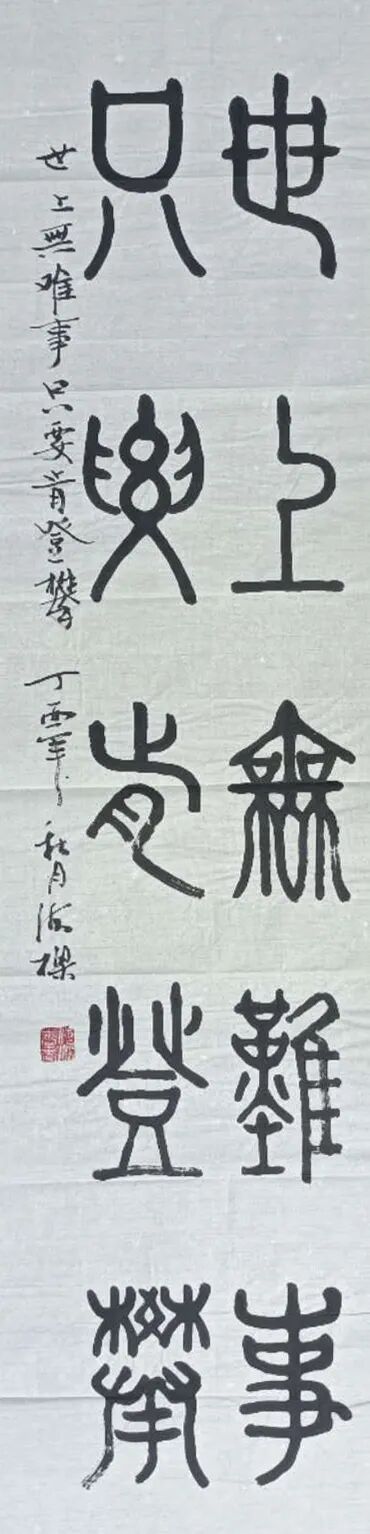 世上無難事
只要肯登攀
世上無难事只要肯登攀 丁酉年秋月